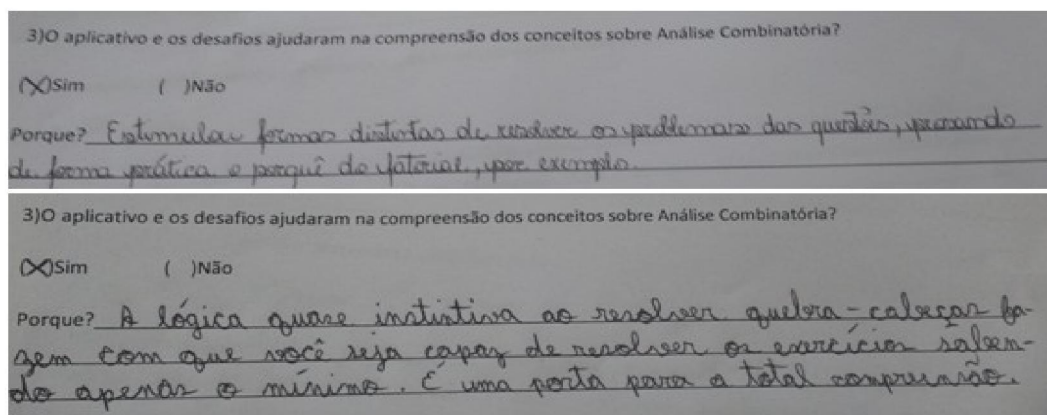 3)O aplicativo e os desafios ajudaram na compreensão dos conceitos sobre Análise Combinatória?
(X)Sim ( )Não
Porque? Estimular formas distintas de resolver os problemas das questões, provando
de forma prática o porquê do fatorial, por exemplo.
3)O aplicativo e os desafios ajudaram na compreensão dos conceitos sobre Análise Combinatória?
(X)Sim ( )Não
Porque? A lógica quase instintiva ao resolver quebra-cabeças fa-
zem com que você seja capaz de resolver os exercícios saben-
do apenas o mínimo. É uma porta para a total compreensão.